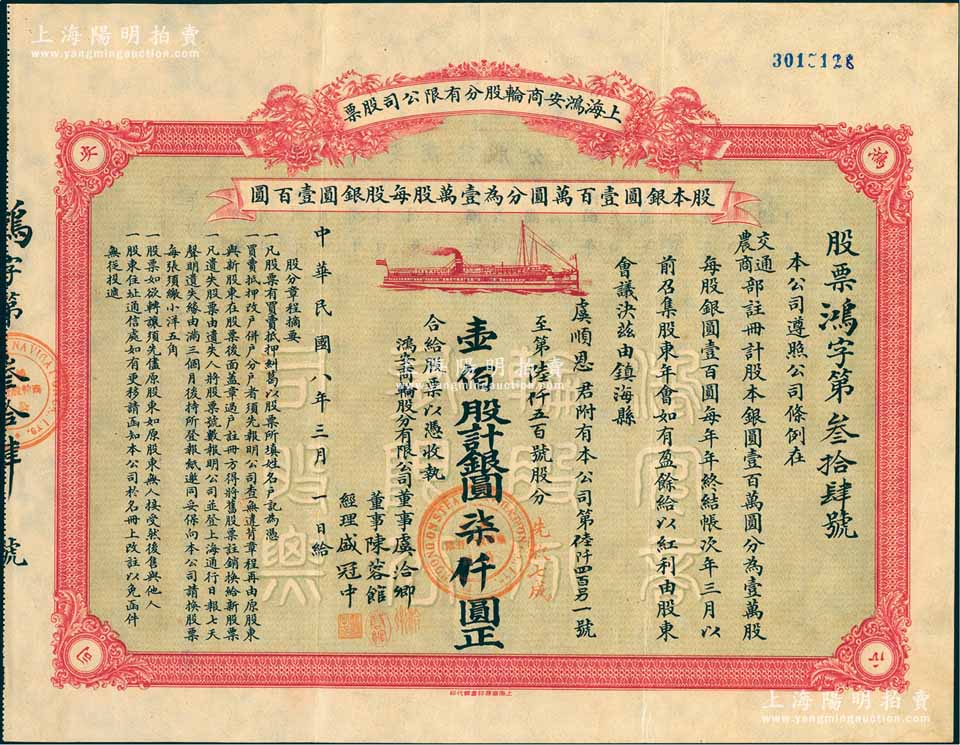 上海陽明拍賣
www.yangmingauction.com
上海鴻安商輪股分有限公司股票
股本銀圓壹百萬圓分為壹萬股每股銀圓壹百圓
股票鴻字第叁拾肆號
本公司遵照公司條例在
交通
農商部註冊計股本銀圓壹百萬圓分為壹萬股
每股銀圓壹百圓每年年終結帳次年三月以
前召集股東年會如有盈餘給以紅利由股東
會議決茲由鎮海縣
虞順恩君附有本公司第陸阡四百另一號
至第陸仟五百號股分
壹佰股計銀圓柒仟圓正
先收七成
合給股票以憑收執
鴻安商輪股分有限公司董事虞洽卿
董事陳蓉館
經理盛冠中
中華民國八年三月一日給
股分章程摘要
一凡股票有買賣抵押糾葛以股票所填姓名戶記為憑
一買賣抵押改戶併戶分戶者須先報明公司查無違背章程再由原股東
與新股東在股票後面蓋章過戶註冊方得將舊股票註銷換給新股票
一凡遺失股票由遺失人將股票號數報明公司並登上海通行日報七天
聲明遺失緣由滿三個月後持所登報紙邀同妥保向本公司請換股票
每張須繳小洋五角
一股票如欲轉讓須先儘原股東如原股東無人接受然後售與他人
一股東住址通信處如有更移請函知本公司於名冊上改註以免函件
無從投遞
鴻字第叁拾肆號
鴻
安
公
司
上海陽明拍賣
www.yangmingauction.com
上海陽明拍賣
www.yangmingauction.com